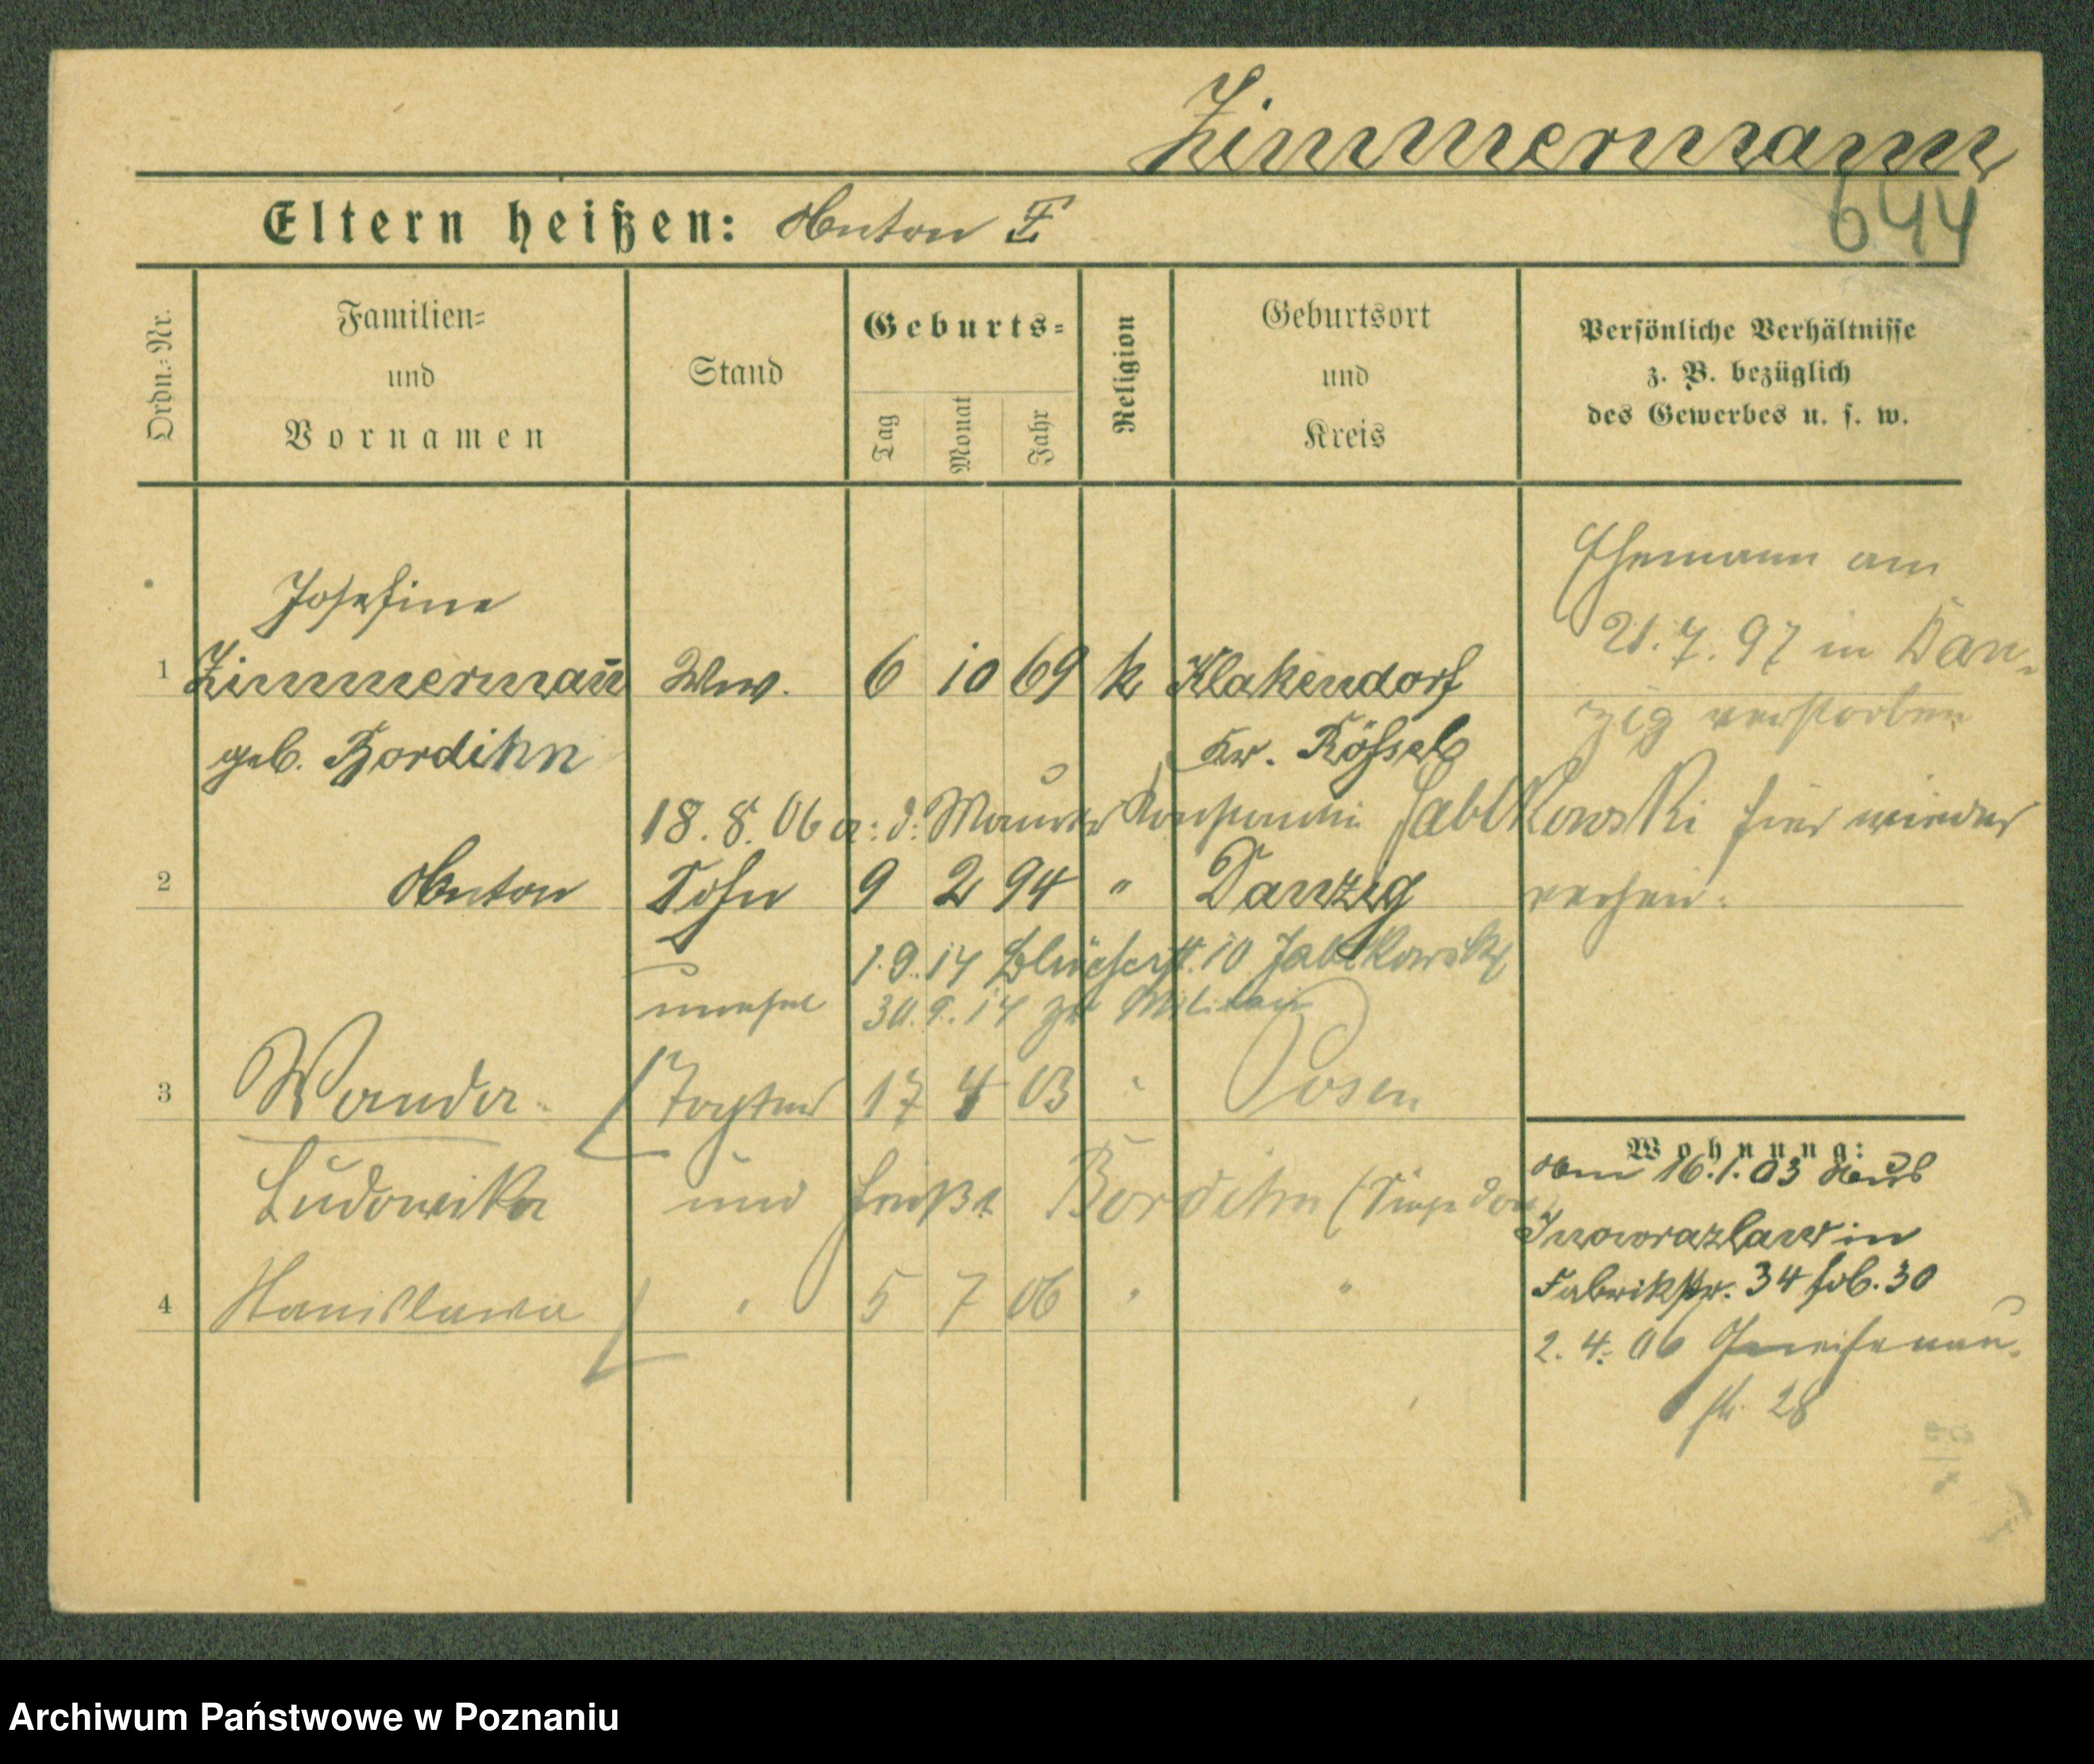 Zimmermann
Eltern heißen: Anton Z
644
Ordn.-Nr.
Familien-
und
Vornamen
Stand
Geburts-
Tag
Monat
Jahr
Religion
Geburtsort
und
Kreis
Persönliche Verhältnisse
z. B. bezüglich
des Gewerbes u. s. w.
Ehemann am
21.7.97 in Dan-
zig verstorben
Josefine
1 Zimmermann̄ Ww. 6 10 69 k Klakendorf
geb. Bordihn Kr. Rössel
18.8.06 a: d: Maurer Konstantin Jablkowski hier wieder
verheir.
2 Anton Sohn 9 2 94 " Danzig
1.9.14 Blücherstr. 10 Jablkowski
unehel 30.9.14 zu Militair
3 Wanda Tochter 17 4 03 " Posen
Ludowika und heißt Bordihn (Siehe dor
4 Stanislawa " 5 7 06 " "
Wohnung:
Am 16.1.03 aus
Inowrazlaw in
Fabrikstr. 34 38
2.4.06 Gneisenau-
str. 28
Archiwum Państwowe w Poznaniu